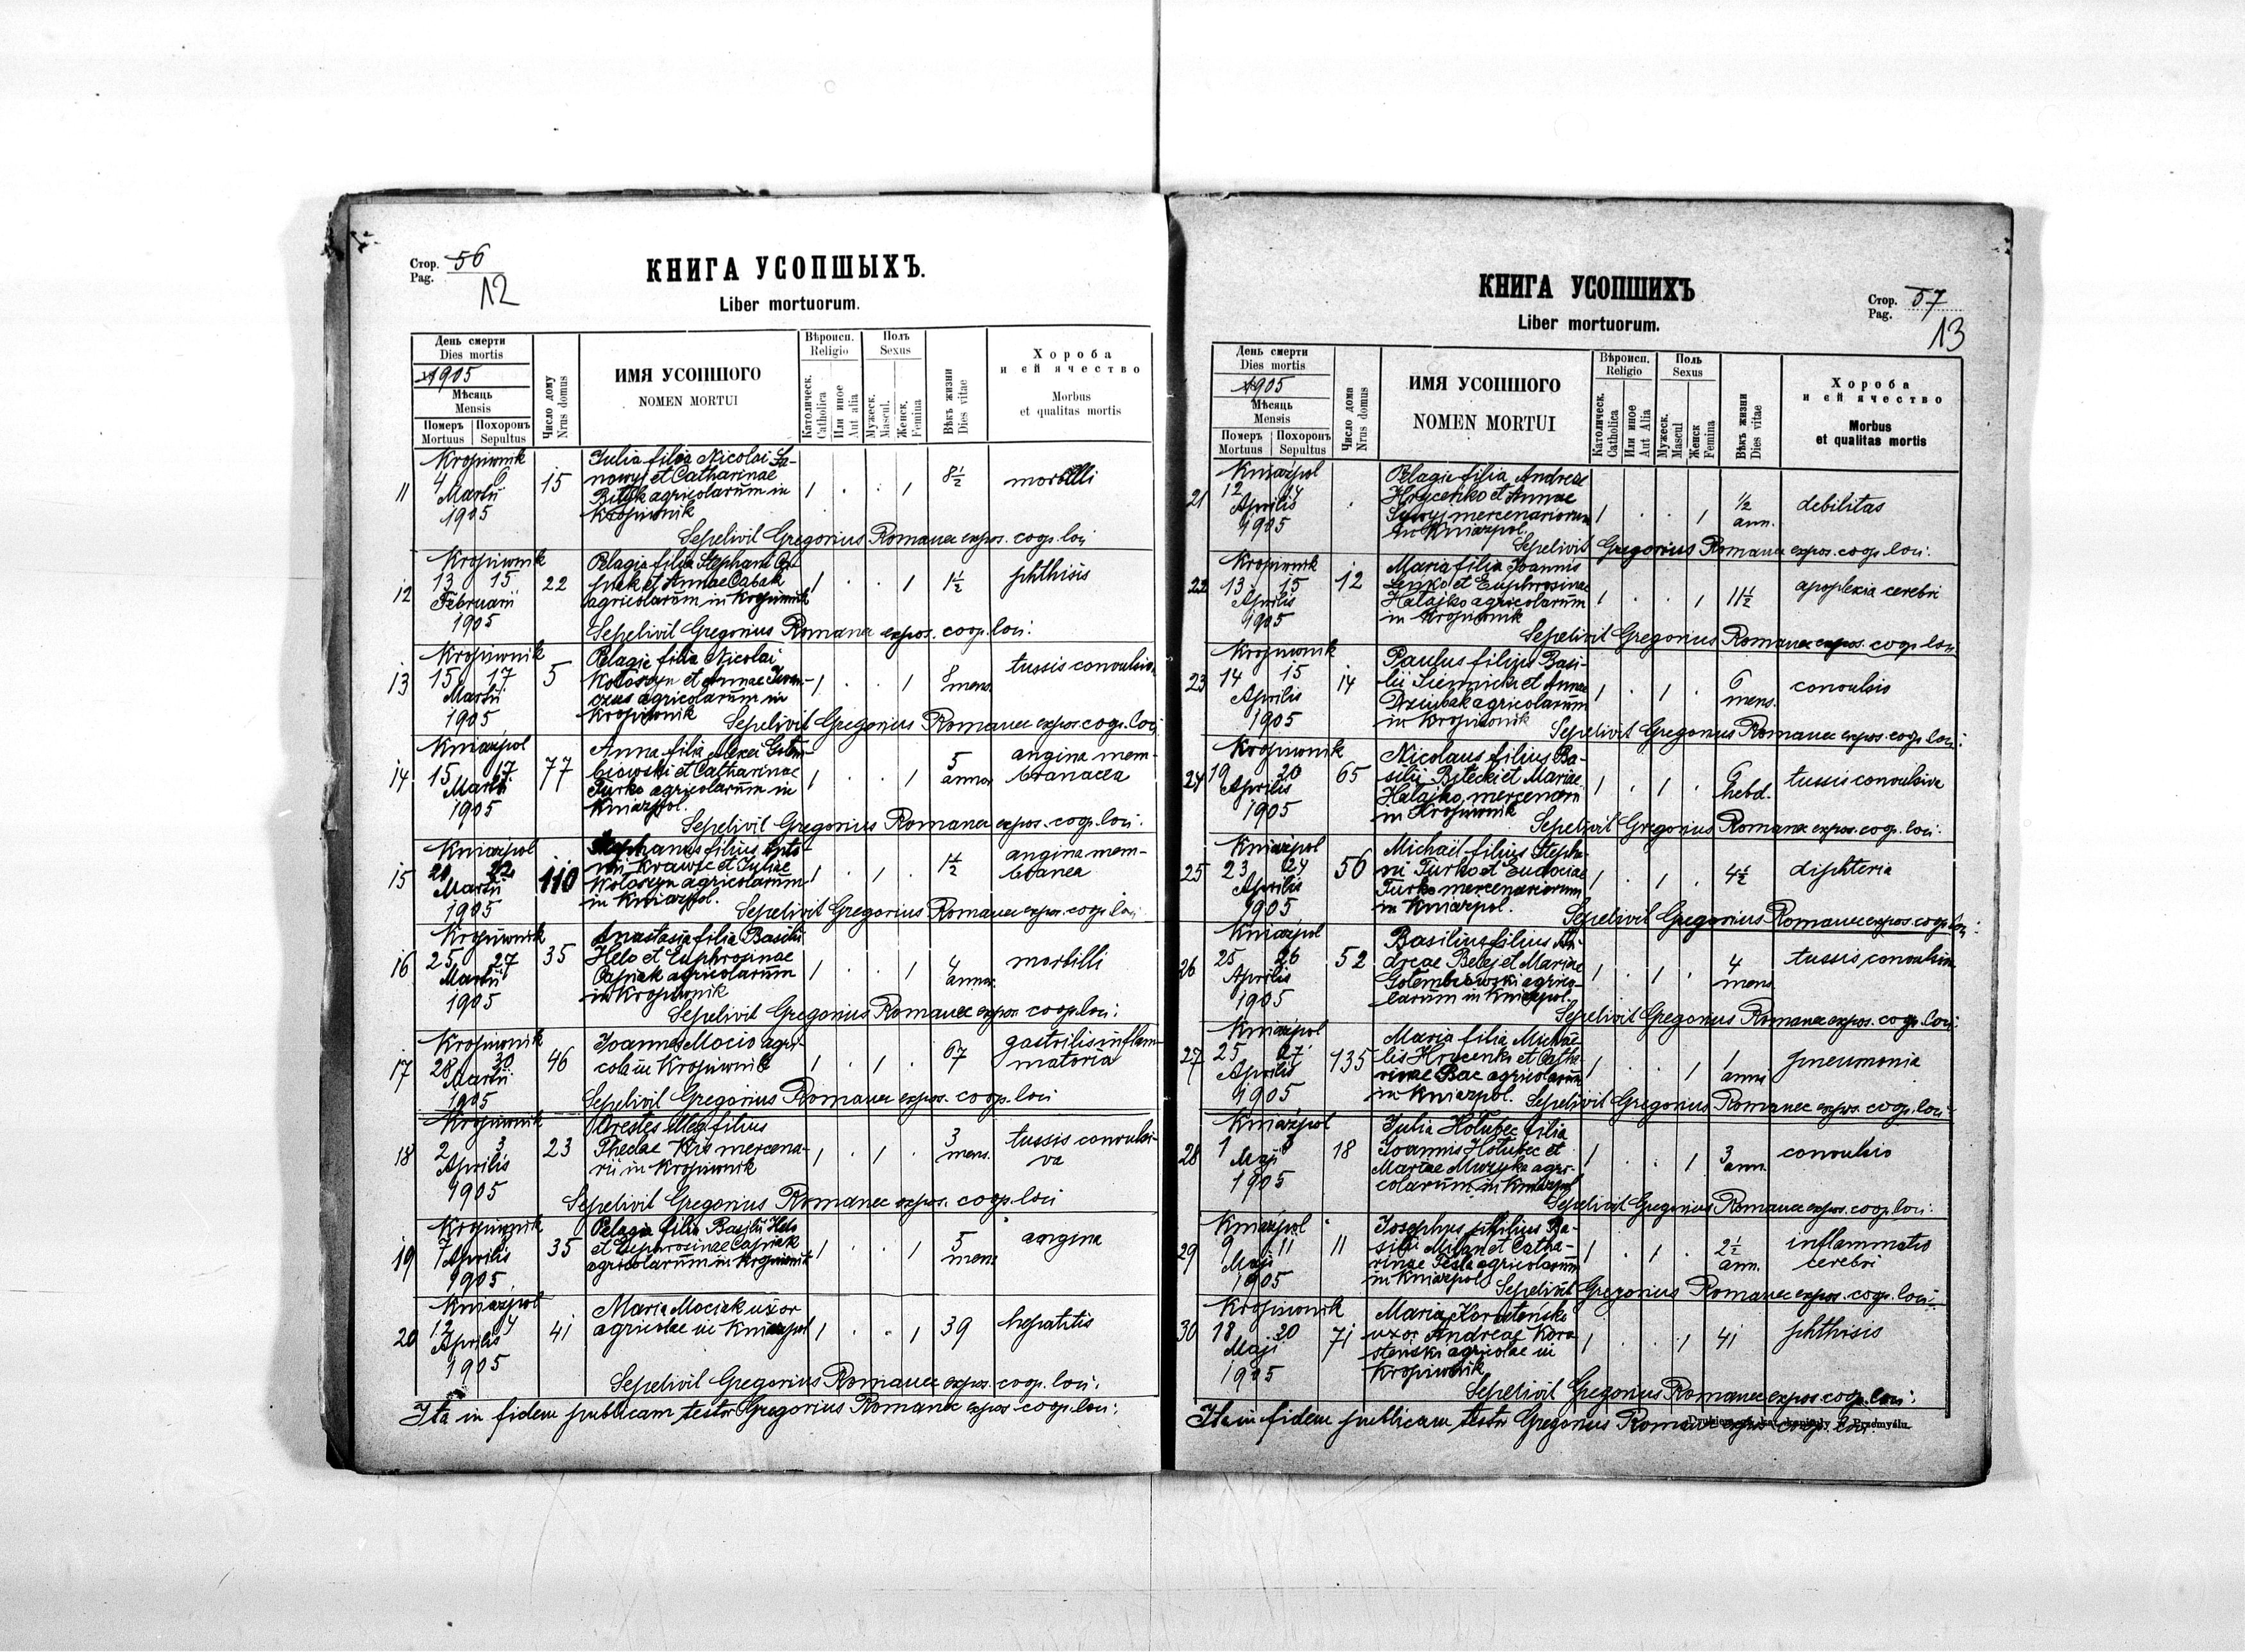 Стор. 56
Pag.
12
КНИГА УСОПШЫХЪ.
Liber mortuorum.
День смерти
Dies mortis
1905
Мѣсяць
Mensis
Померъ Похоронъ
Mortuus Sepultus
Число дому
Nrus domus
ИМЯ УСОПШОГО
NOMEN MORTUI
Вѣроисп.
Religio
Католическ.
Catholica
Или иное
Aut alia
Полъ
Sexus
Мужеск.
Mascul.
Женск.
Femina
Вѣкъ жизни
Dies vitae
Хороба
и ей ячество
Morbus
et qualitas mortis
Kropiwnik
11 4 6 Martii 1905 15
Julia filia Nicolai
et Catharinae
Bityk agricolarum in
Kropiwnik
1 . . 1 8½ morbilli
Sepelivit Gregorius Romanec expos. coop. loci
Kropiwnik
12 13 15 Februarii 1905 22
Pelagia filia Stephani Ca-
piak et Annae Cabak
agricolarum in Kropiwnik
1 . . 1 1½ phthisis
Sepelivit Gregorius Romanec expos. coop. loci:
Kropiwnik
13 15 17 Martii 1905 5
Pelagia filia Nicolai
Kołoszyn et Annae
agricolarum in
Kropiwnik
1 . . 1 8 mens. tussis convulsiva
Sepelivit Gregorius Romanec expos. coop. loci
Kniaźpol
14 15 17 Martii 1905 77
Anna filia Alexei Golem-
biowski et Catharinae
Turko agricolarum in
Kniaźpol.
1 . . 1 5 annor. angina mem-
branacea
Sepelivit Gregorius Romanec expos. coop. loci:
Kniaźpol
15 22 Martii 1905 110
Stephanus filius Anto-
nii Krawic et Juliae
Kołoszyn agricolarum
in Kniaźpol.
1 . 1 . 1½ angina mem-
branea
Sepelivit Gregorius Romanec expos. coop. loci
Kropiwnik
16 25 27 Martii 1905 35
Anastasia filia Basilii
Helo et Euphrosinae
Capiak agricolarum
in Kropiwnik
1 . . 1 4 annor. morbilli
Sepelivit Gregorius Romanec expos. coop. loci:
Kropiwnik
17 28 30 Martii 1905 46
Joannes Mocio agri-
cola in Kropiwnik
1 . 1 . 67 gastritis inflam-
matoria
Sepelivit Gregorius Romanec expos. coop. loci
Kropiwnik
18 2 3 Aprilis 1905 23
Orestes filius
Thedae Kis mercena-
rii in Kropiwnik
1 . 1 . 3 mens. tussis convulsi-
va
Sepelivit Gregorius Romanec expos. coop. loci
Kropiwnik
19 7 Aprilis 1905 35
Pelagia filia Basilii Helo
et Euphrosinae Capiak
agricolarum in Kropiwnik
1 . . 1 5 mens. angina
Kniaźpol
20 12 14 Aprilis 1905 41
Maria Mociak uxor
agricolae in Kniaźpol
1 . . 1 39 hepatitis
Sepelivit Gregorius Romanec expos. coop. loci.
Ita in fidem publicam testor Gregorius Romanec expos coop. loci:
КНИГА УСОПШИХЪ
Liber mortuorum.
Стор. 57
Pag.
13
День смерти
Dies mortis
1905
Мѣсяць
Mensis
Померъ Похоронъ
Mortuus Sepultus
Число дома
Nrus domus
ИМЯ УСОПШОГО
NOMEN MORTUI
Вѣроисп.
Religio
Католическ.
Catholica
Или иное
Aut Alia
Поль
Sexus
Мужеск.
Mascul
Женск
Femina
Вѣкъ жизни
Dies vitae
Хороба
и ей ячество
Morbus
et qualitas mortis
Kniaźpol
21 12 14 Aprilis 1905 .
Pelagia filia Andreae
Hrycenko et Annae
mercenariorum
in Kniaźpol.
1 . . 1 ½ ann. debilitas
Sepelivit Gregorius Romanec expos. coop. loci:
Kropiwnik
22 13 15 Aprilis 1905 12
Maria filia Joannis
Leńko et Euphrosinae
Hałajko agricolarum
in Kropiwnik
1 . . 1 11½ apoplexia cerebri
Sepelivit Gregorius Romanec expos. coop. loci
Kropiwnik
23 14 15 Aprilis 1905 14
Paulus filius Basi-
lii Siennicki et Annae
Dziubak agricolarum
in Kropiwnik
1 . 1 . 6 mens. convulsio
Sepelivit Gregorius Romanec expos. coop. loci:
Kropiwnik
24 19 20 Aprilis 1905 65
Nicolaus filius Ba-
silii Bitecki et Mariae
Hałajko, mercenarii
in Kropiwnik
1 . 1 . 6 hebd. tussis convulsiva
Sepelivit Gregorius Romanec expos. coop. loci:
Kniaźpol
25 23 24 Aprilis 1905 56
Michaël filius Stepha-
ni Turko et Eudociae
Turko mercenariorum
in Kniaźpol.
1 . 1 . 4½ diphteria
Sepelivit Gregorius Romanec expos. coop. loci:
Kniaźpol
26 25 26 Aprilis 1905 52
Basilius filius An-
dreae Belej et Mariae
Golembiowski agrico-
larum in Kniaźpol.
1 . 1 . 4 mens. tussis convulsiva
Sepelivit Gregorius Romanec expos. coop. loci:
Kniaźpol
27 25 27 Aprilis 1905 135
Maria filia Michaë-
lis Hrycenko et Catha-
rinae Bac agricolarum
in Kniaźpol.
1 . . 1 1 anni pneumonia
Sepelivit Gregorius Romanec expos. coop. loci:
Kniaźpol
28 1 3 Maji 1905 18
Julia Hołubec filia
Joannis Hołubec et
Mariae Muzyka agri-
colarum in Kniaźpol
1 . . 1 3 ann. convulsio
Sepelivit Gregorius Romanec expos. coop. loci:
Kniaźpol
29 9 11 Maji 1905 11
Josephus filius Ba-
silii Milan et Catha-
rinae Tesla agricolarum
in Kniaźpol
1 . 1 . 2½ ann. inflammatio
cerebri
Sepelivit Gregorius Romanec expos. coop. loci:
Kropiwnik
30 18 20 Maji 1905 71
Maria Korosteński
uxor Andreae Koro-
steński agricolae in
Kropiwnik
1 . . 1 41 phthisis
Sepelivit Gregorius Romanec expos coop. loci:
Ita in fidem publicam testor Gregorius Romanec expos coop. loci.